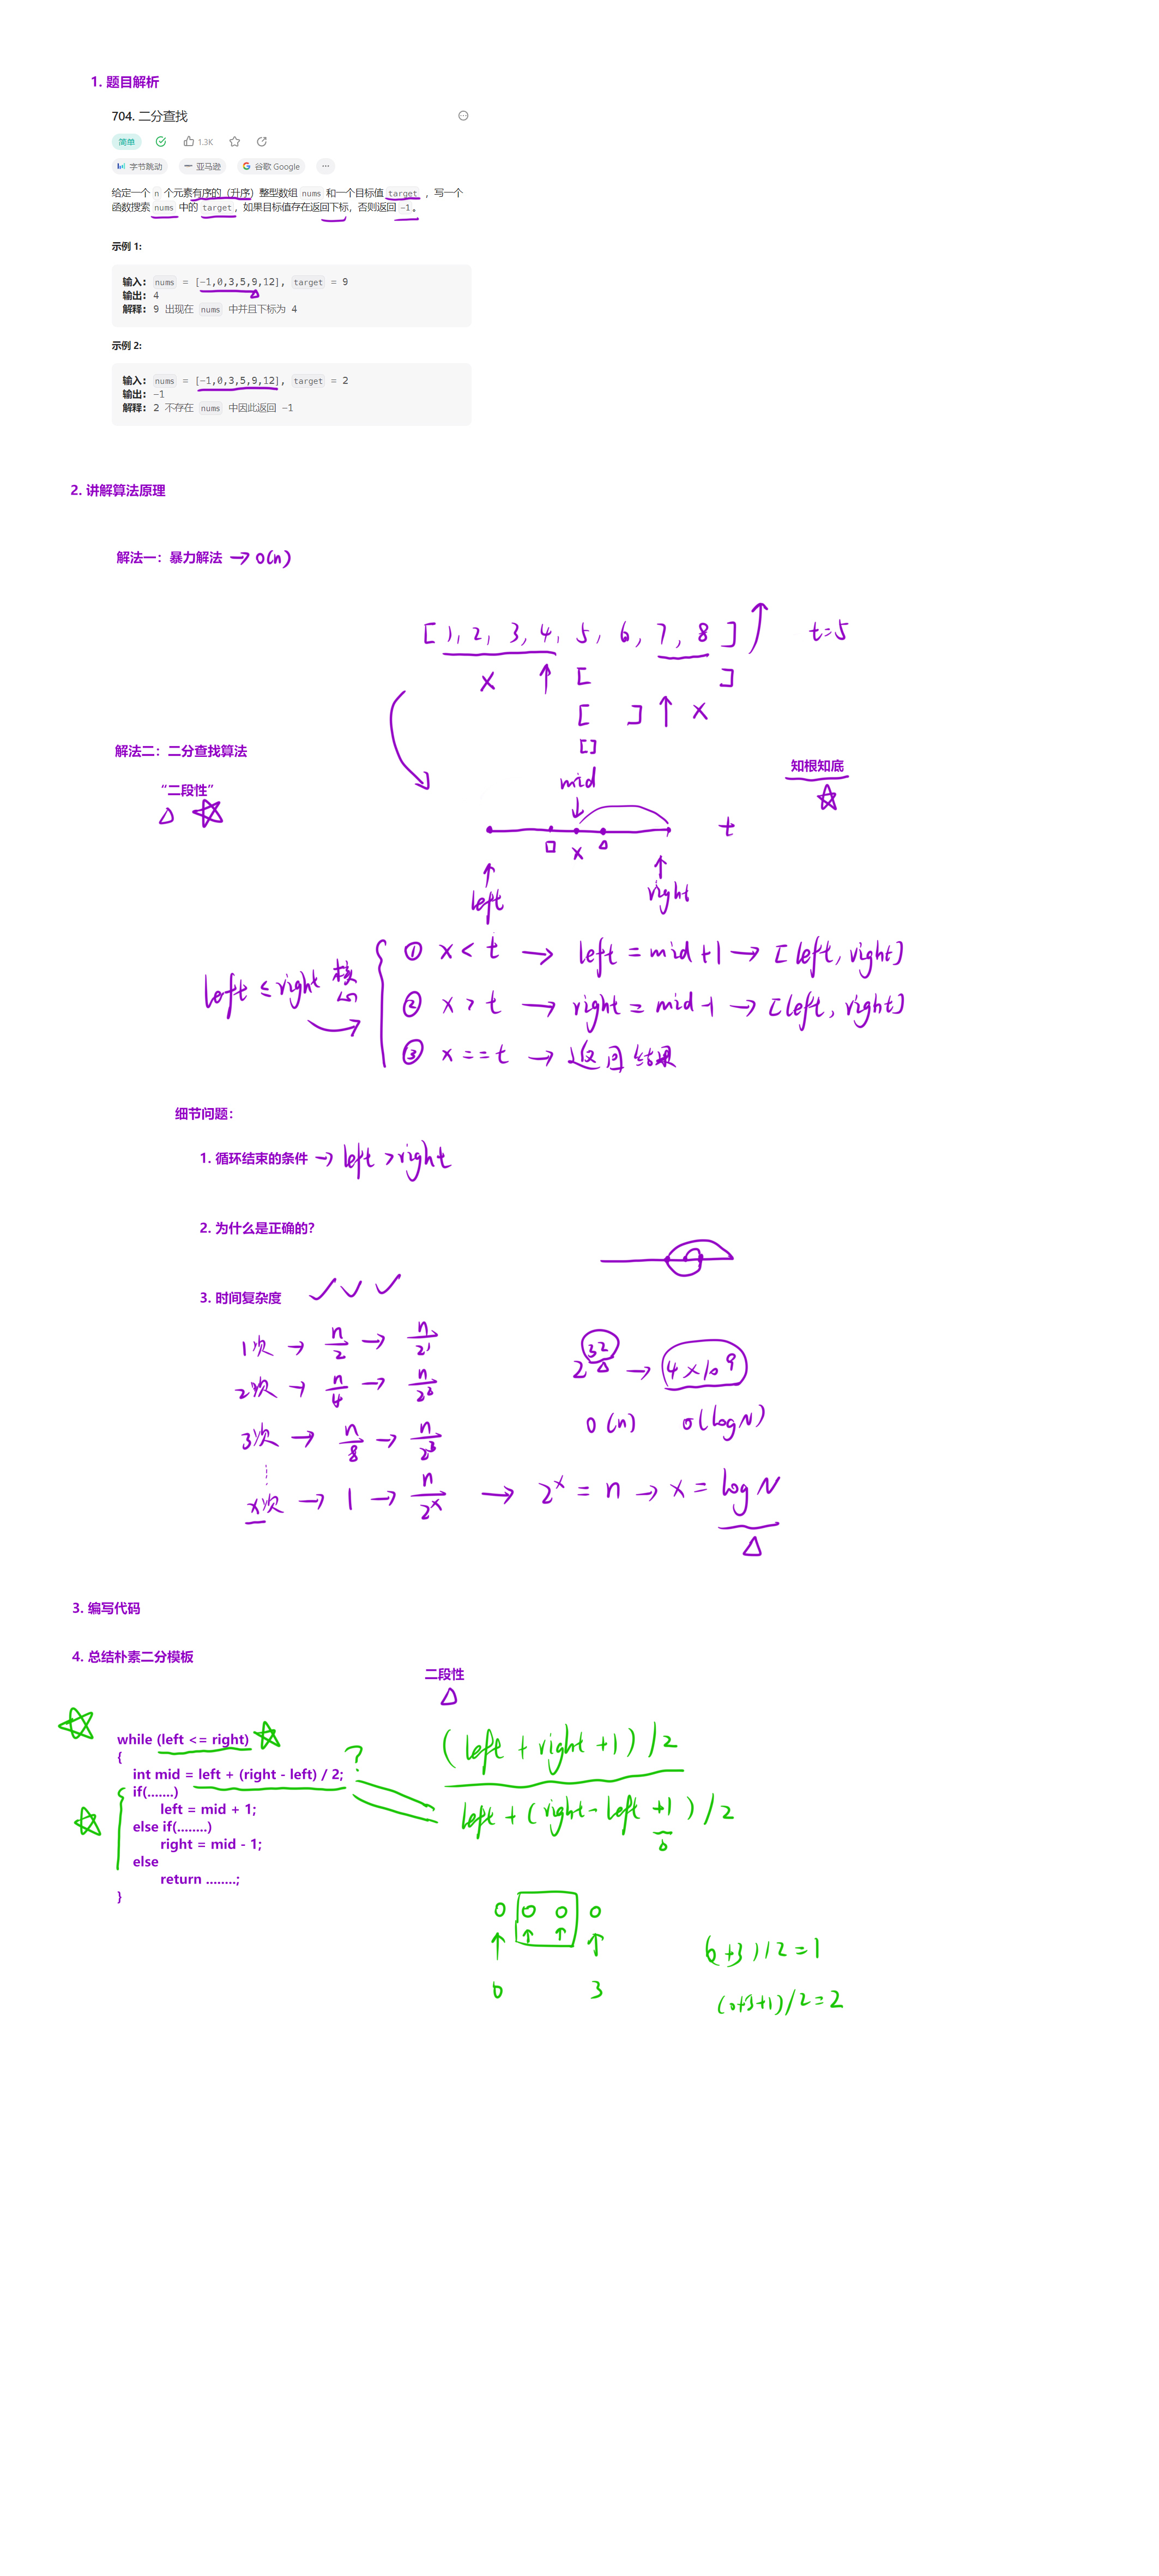 1. 题目解析
704. 二分查找
简单 1.3K
字节跳动 亚马逊 谷歌 Google ...
给定一个 n 个元素有序的（升序）整型数组 nums 和一个目标值 target ，写一个
函数搜索 nums 中的 target，如果目标值存在返回下标，否则返回 -1。
示例 1:
输入: nums = [-1,0,3,5,9,12], target = 9
输出: 4
解释: 9 出现在 nums 中并且下标为 4
示例 2:
输入: nums = [-1,0,3,5,9,12], target = 2
输出: -1
解释: 2 不存在 nums 中因此返回 -1
2. 讲解算法原理
解法一：暴力解法 → O(n)
[1, 2, 3, 4, 5, 6, 7, 8] t=5
x ↑ [ ]
[ ] ↑ x
[]
解法二：二分查找算法
知根知底
“二段性”
mid
t
x
left
right
① x < t → left = mid+1 → [left, right]
left ≤ right 核心
② x > t → right = mid-1 → [left, right]
③ x == t → 返回结果
细节问题：
1. 循环结束的条件 → left > right
2. 为什么是正确的？
3. 时间复杂度
1次 → n/2 → n/2^1
2^32 → 4×10^9
2次 → n/4 → n/2^2
O(n) O(logN)
3次 → n/8 → n/2^3
x次 → 1 → n/2^x → 2^x = n → x = logN
3. 编写代码
4. 总结朴素二分模板
二段性
while (left <= right)
{
int mid = left + (right - left) / 2; ?
if(.......)
left = mid + 1;
else if(........)
right = mid - 1;
else
return ........;
}
(left + right +1) / 2
left + (right - left +1) / 2
0 0 0 0
0 3
(0+3)/2=1
(0+3+1)/2=2